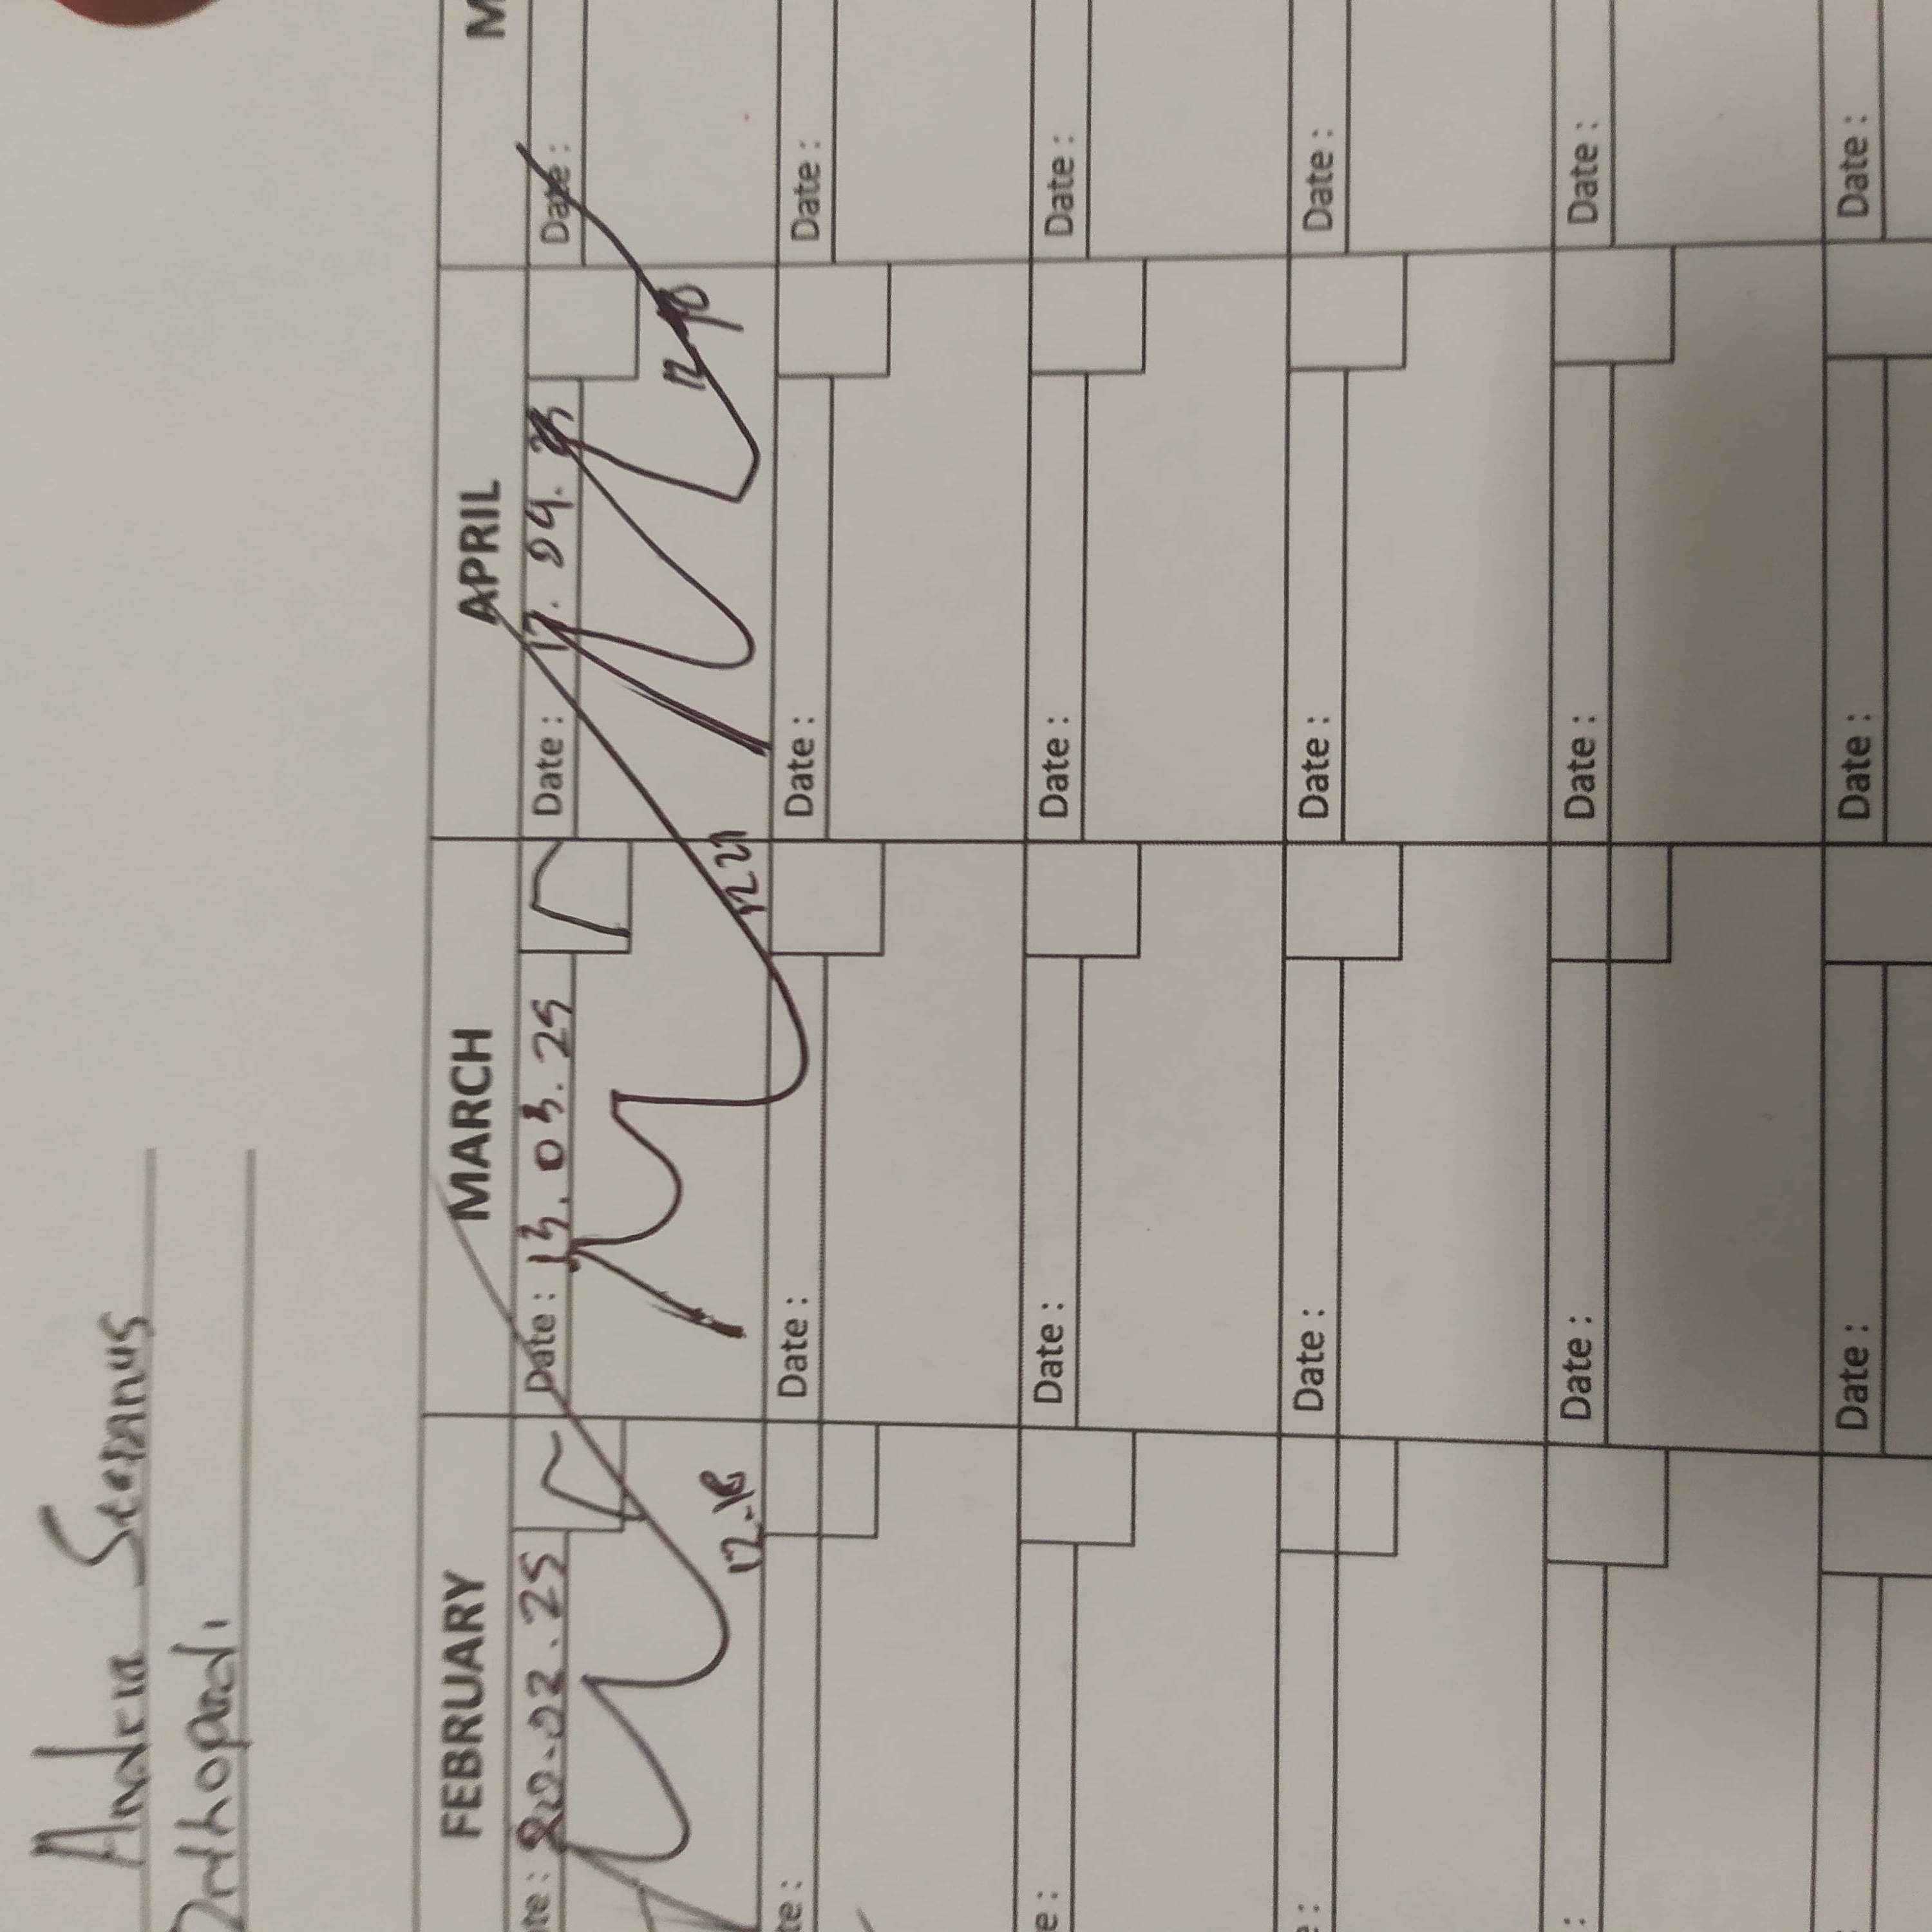 Andrea Stefanus
Orthopädi
FEBRUARY MARCH APRIL M
te: 20.02.25 Date: 13.03.25 Date: 17.04.25 Date:
12-18
te: Date: Date: Date:
e: Date: Date: Date:
e: Date: Date: Date:
: Date: Date: Date:
Date: Date: Date: